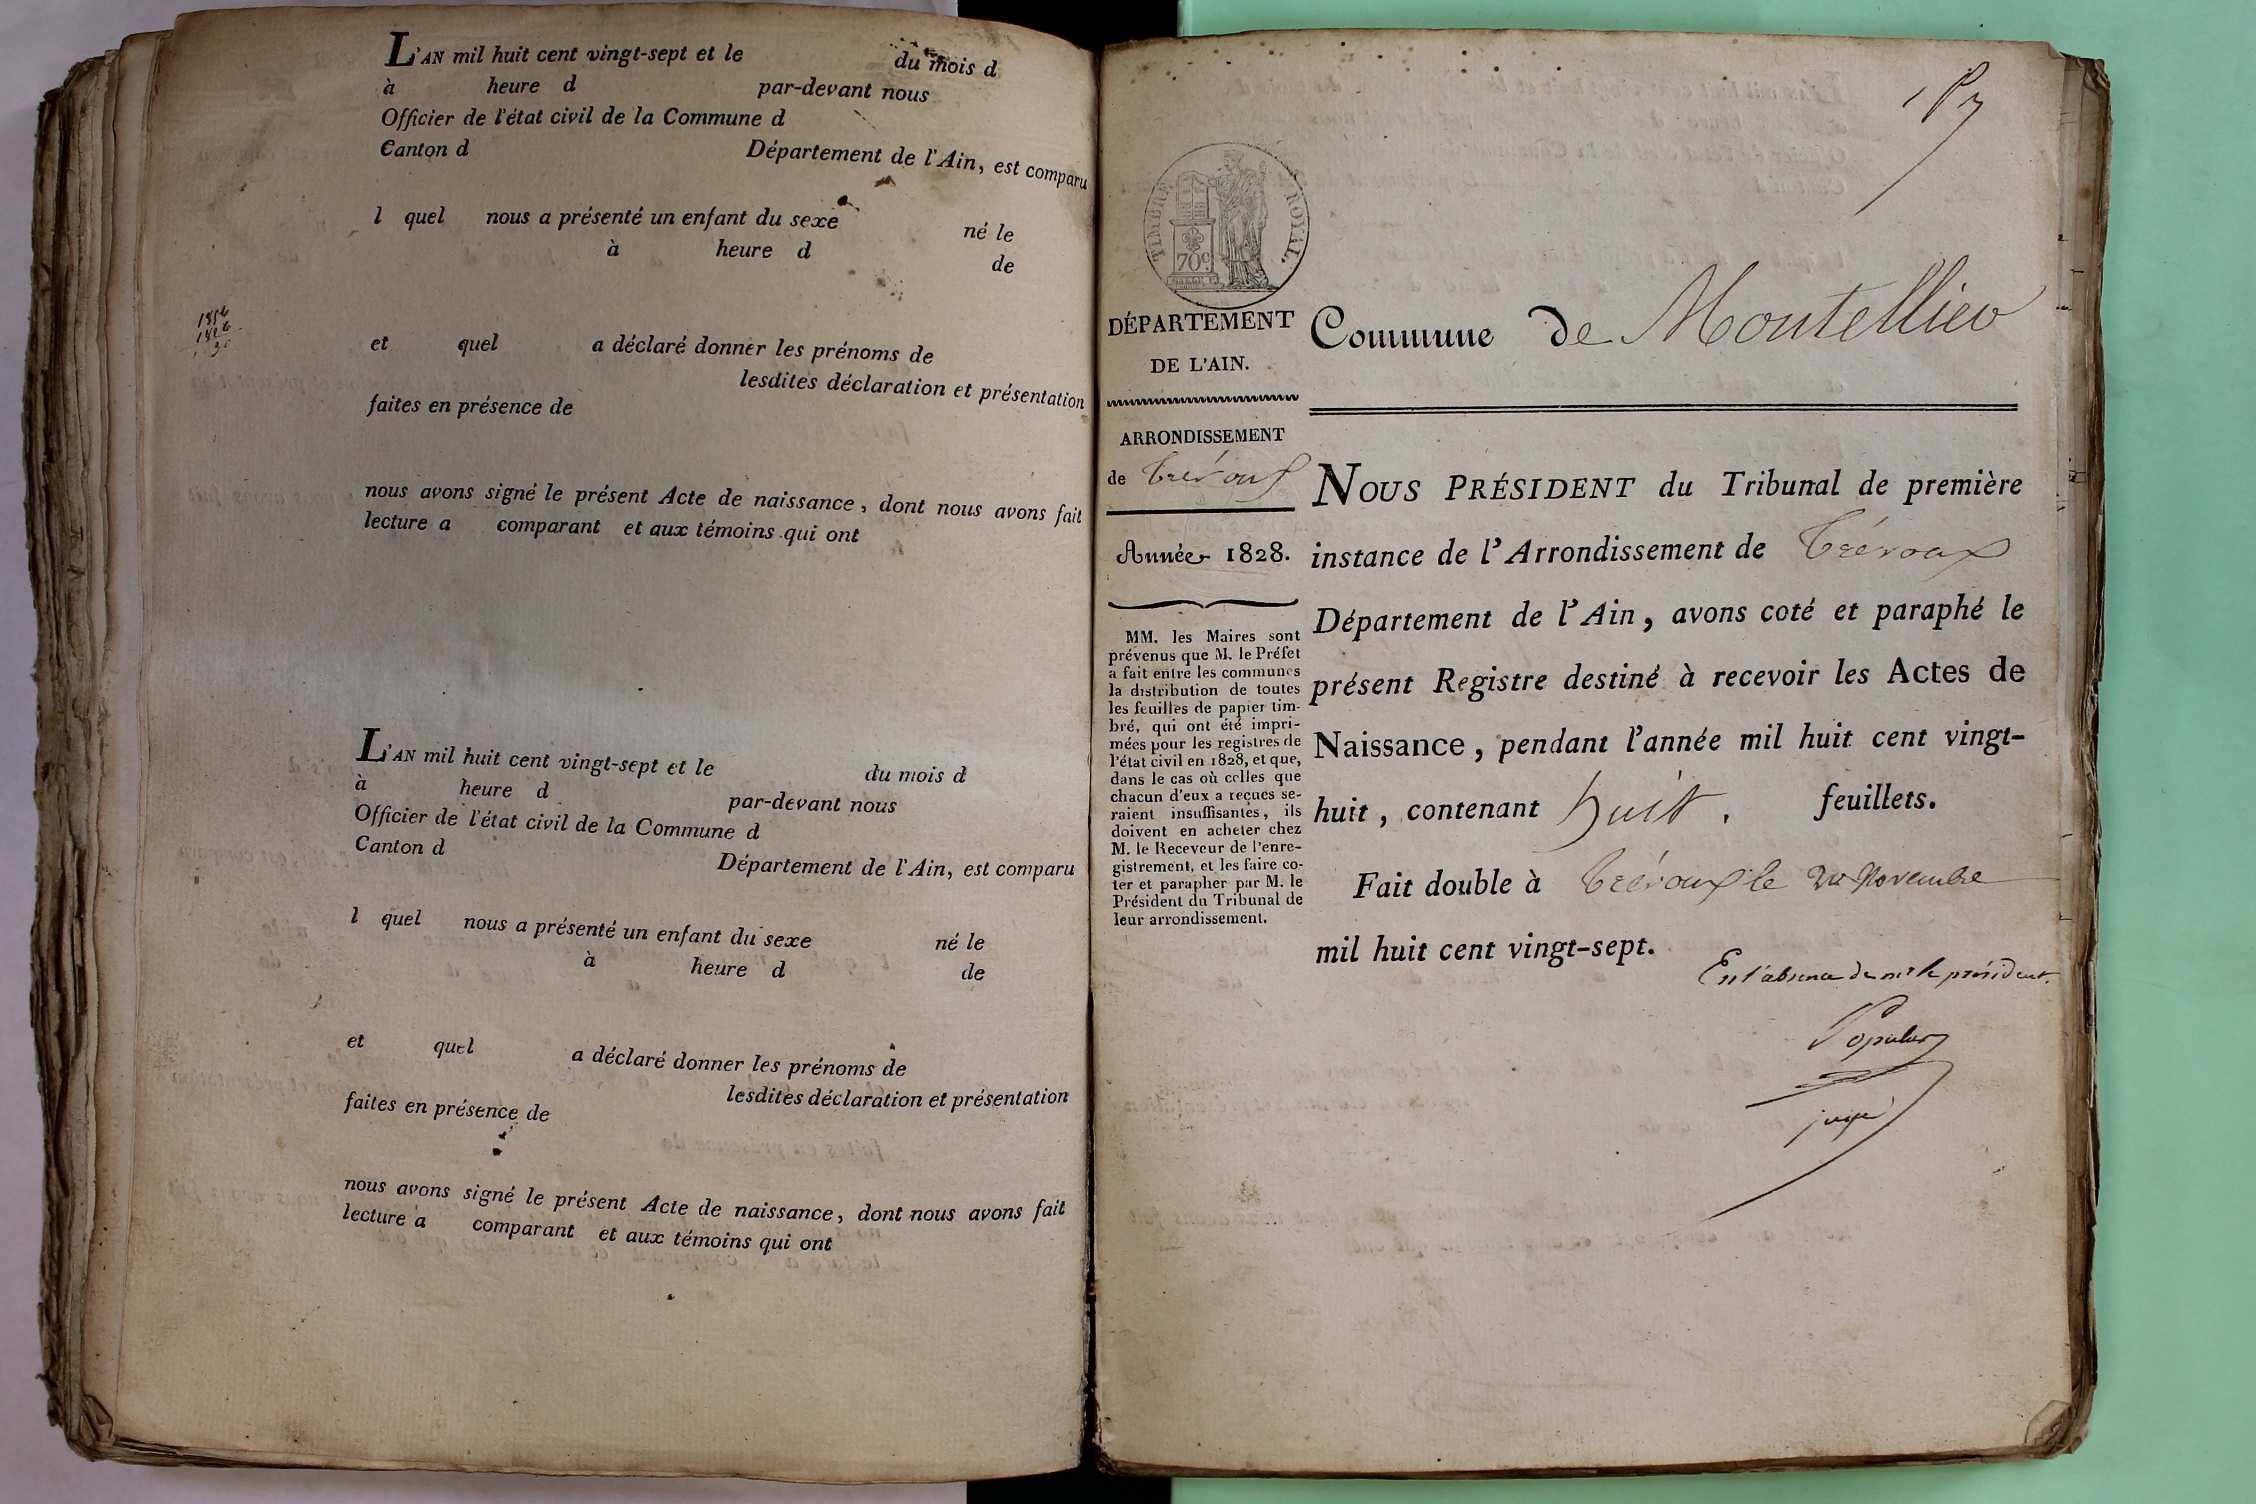 L'AN mil huit cent vingt-sept et le du mois d
à heure d par-devant nous
Officier de l'état civil de la Commune d
Canton d Département de l'Ain, est comparu
l quel nous a présenté un enfant du sexe né le
à heure d de
1826
et quel a déclaré donner les prénoms de
lesdites déclaration et présentation
faites en présence de
nous avons signé le présent Acte de naissance, dont nous avons fait
lecture a comparant et aux témoins qui ont
L'AN mil huit cent vingt-sept et le du mois d
à heure d par-devant nous
Officier de l'état civil de la Commune d
Canton d Département de l'Ain, est comparu
l quel nous a présenté un enfant du sexe né le
à heure d de
et quel a déclaré donner les prénoms de
lesdites déclaration et présentation
faites en présence de
nous avons signé le présent Acte de naissance, dont nous avons fait
lecture a comparant et aux témoins qui ont
TIMBRE ROYAL.
70c
DÉPARTEMENT
DE L'AIN.
ARRONDISSEMENT
de Trévoux
Année 1828.
MM. les Maires sont
prévenus que M. le Préfet
a fait entre les communes
la distribution de toutes
les feuilles de papier tim-
bré, qui ont été impri-
mées pour les registres de
l'état civil en 1828, et que,
dans le cas où celles que
chacun d'eux a reçues se-
raient insuffisantes, ils
doivent en acheter chez
M. le Receveur de l'enre-
gistrement, et les faire co-
ter et parapher par M. le
Président du Tribunal de
leur arrondissement.
Commune de Montellier
NOUS PRÉSIDENT du Tribunal de première
instance de l'Arrondissement de Trévoux
Département de l'Ain, avons coté et paraphé le
présent Registre destiné à recevoir les Actes de
Naissance, pendant l'année mil huit cent vingt-
huit, contenant huit. feuillets.
Fait double à Trévoux le Novembre
mil huit cent vingt-sept.
En l'absence de mr le président.
Populus
juge